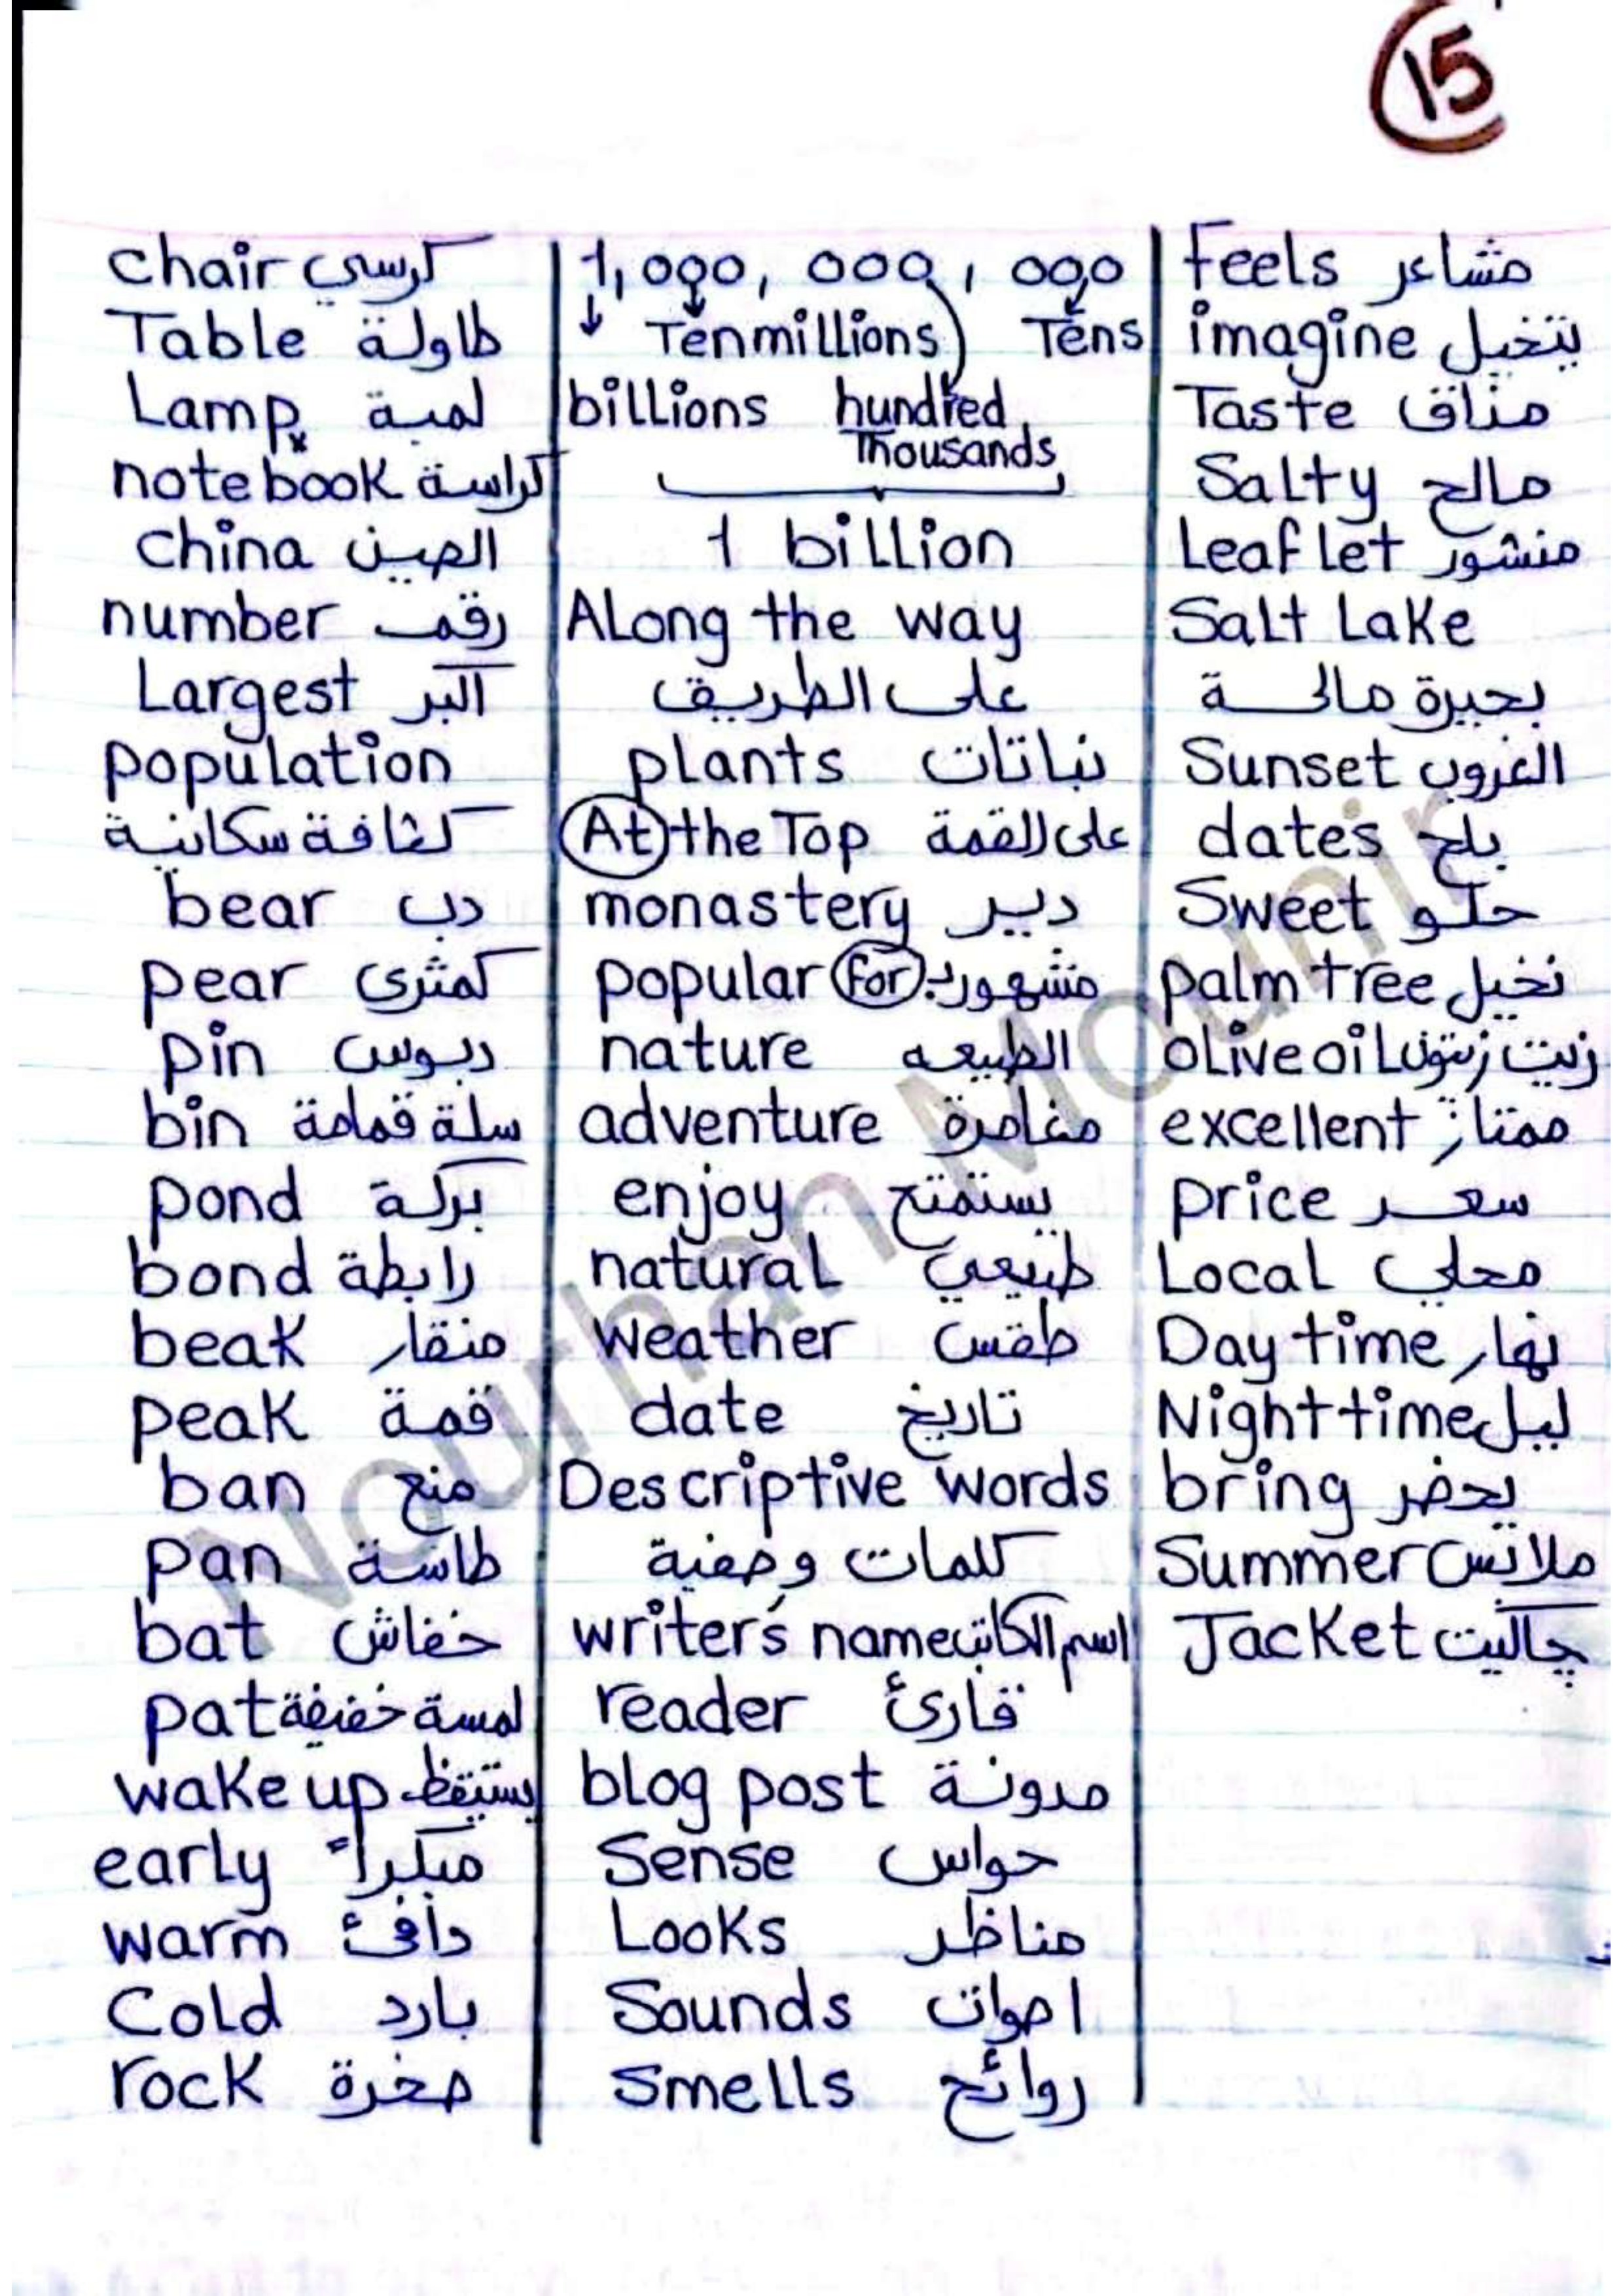 15
chair كرسي
Table طاولة
Lamp لمبة
notebook كراسة
china الصين
number رقم
Largest اكبر
population
كثافة سكانية
bear دب
pear كمثرى
pin دبوس
bin سلة قمامة
pond بركة
bond رابطة
beak منقار
peak قمة
ban منع
pan طاسة
bat خفاش
pat لمسة خفيفة
wake up يستيقظ
early مبكراً
warm دافئ
Cold بارد
rock صخرة
1,000,000,000
Ten millions Tens
billions hundred
Thousands
1 billion
Along the way
على الطريق
plants نباتات
At the Top على القمة
monastery دير
popular for مشهور بـ
nature الطبيعه
adventure مغامرة
enjoy يستمتع
natural طبيعي
weather طقس
date تاريخ
Descriptive words
كلمات وصفية
writer's name اسم الكاتب
reader قارئ
blog post مدونة
Sense حواس
Looks مناظر
Sounds اصوات
Smells روائح
Feels مشاعر
imagine يتخيل
Taste مذاق
Salty مالح
Leaflet منشور
Salt Lake
بحيرة مالحة
Sunset الغروب
dates بلح
Sweet حلو
palm tree نخيل
olive oil زيت زيتون
excellent ممتاز
price سعر
Local محلي
Day time نهار
Night time ليل
bring يحضر
Summer ملابس
Jacket چاكيت
Nourhan Mounir